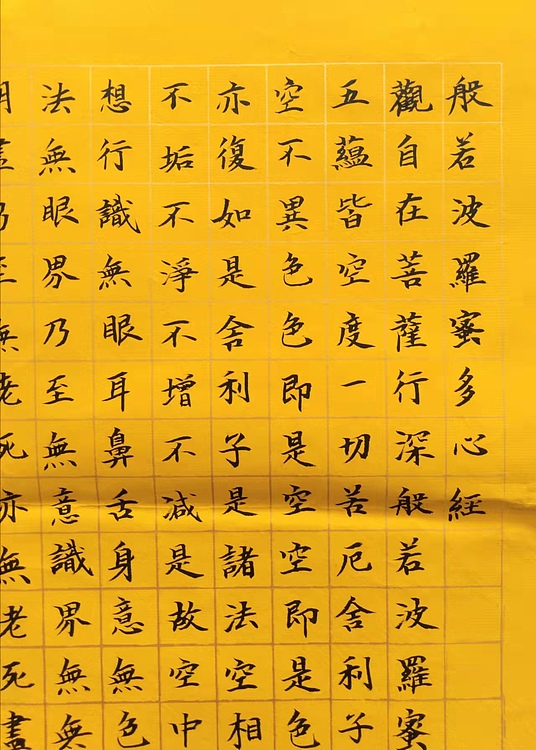 般若波羅蜜多心經
觀自在菩薩行深般若波羅蜜
五蘊皆空度一切苦厄舍利子
空不異色色即是空空即是色
亦復如是舍利子是諸法空相
不垢不淨不增不減是故空中
想行識無眼耳鼻舌身意無色
法無眼界乃至無意識界無無
無老死亦無老死盡